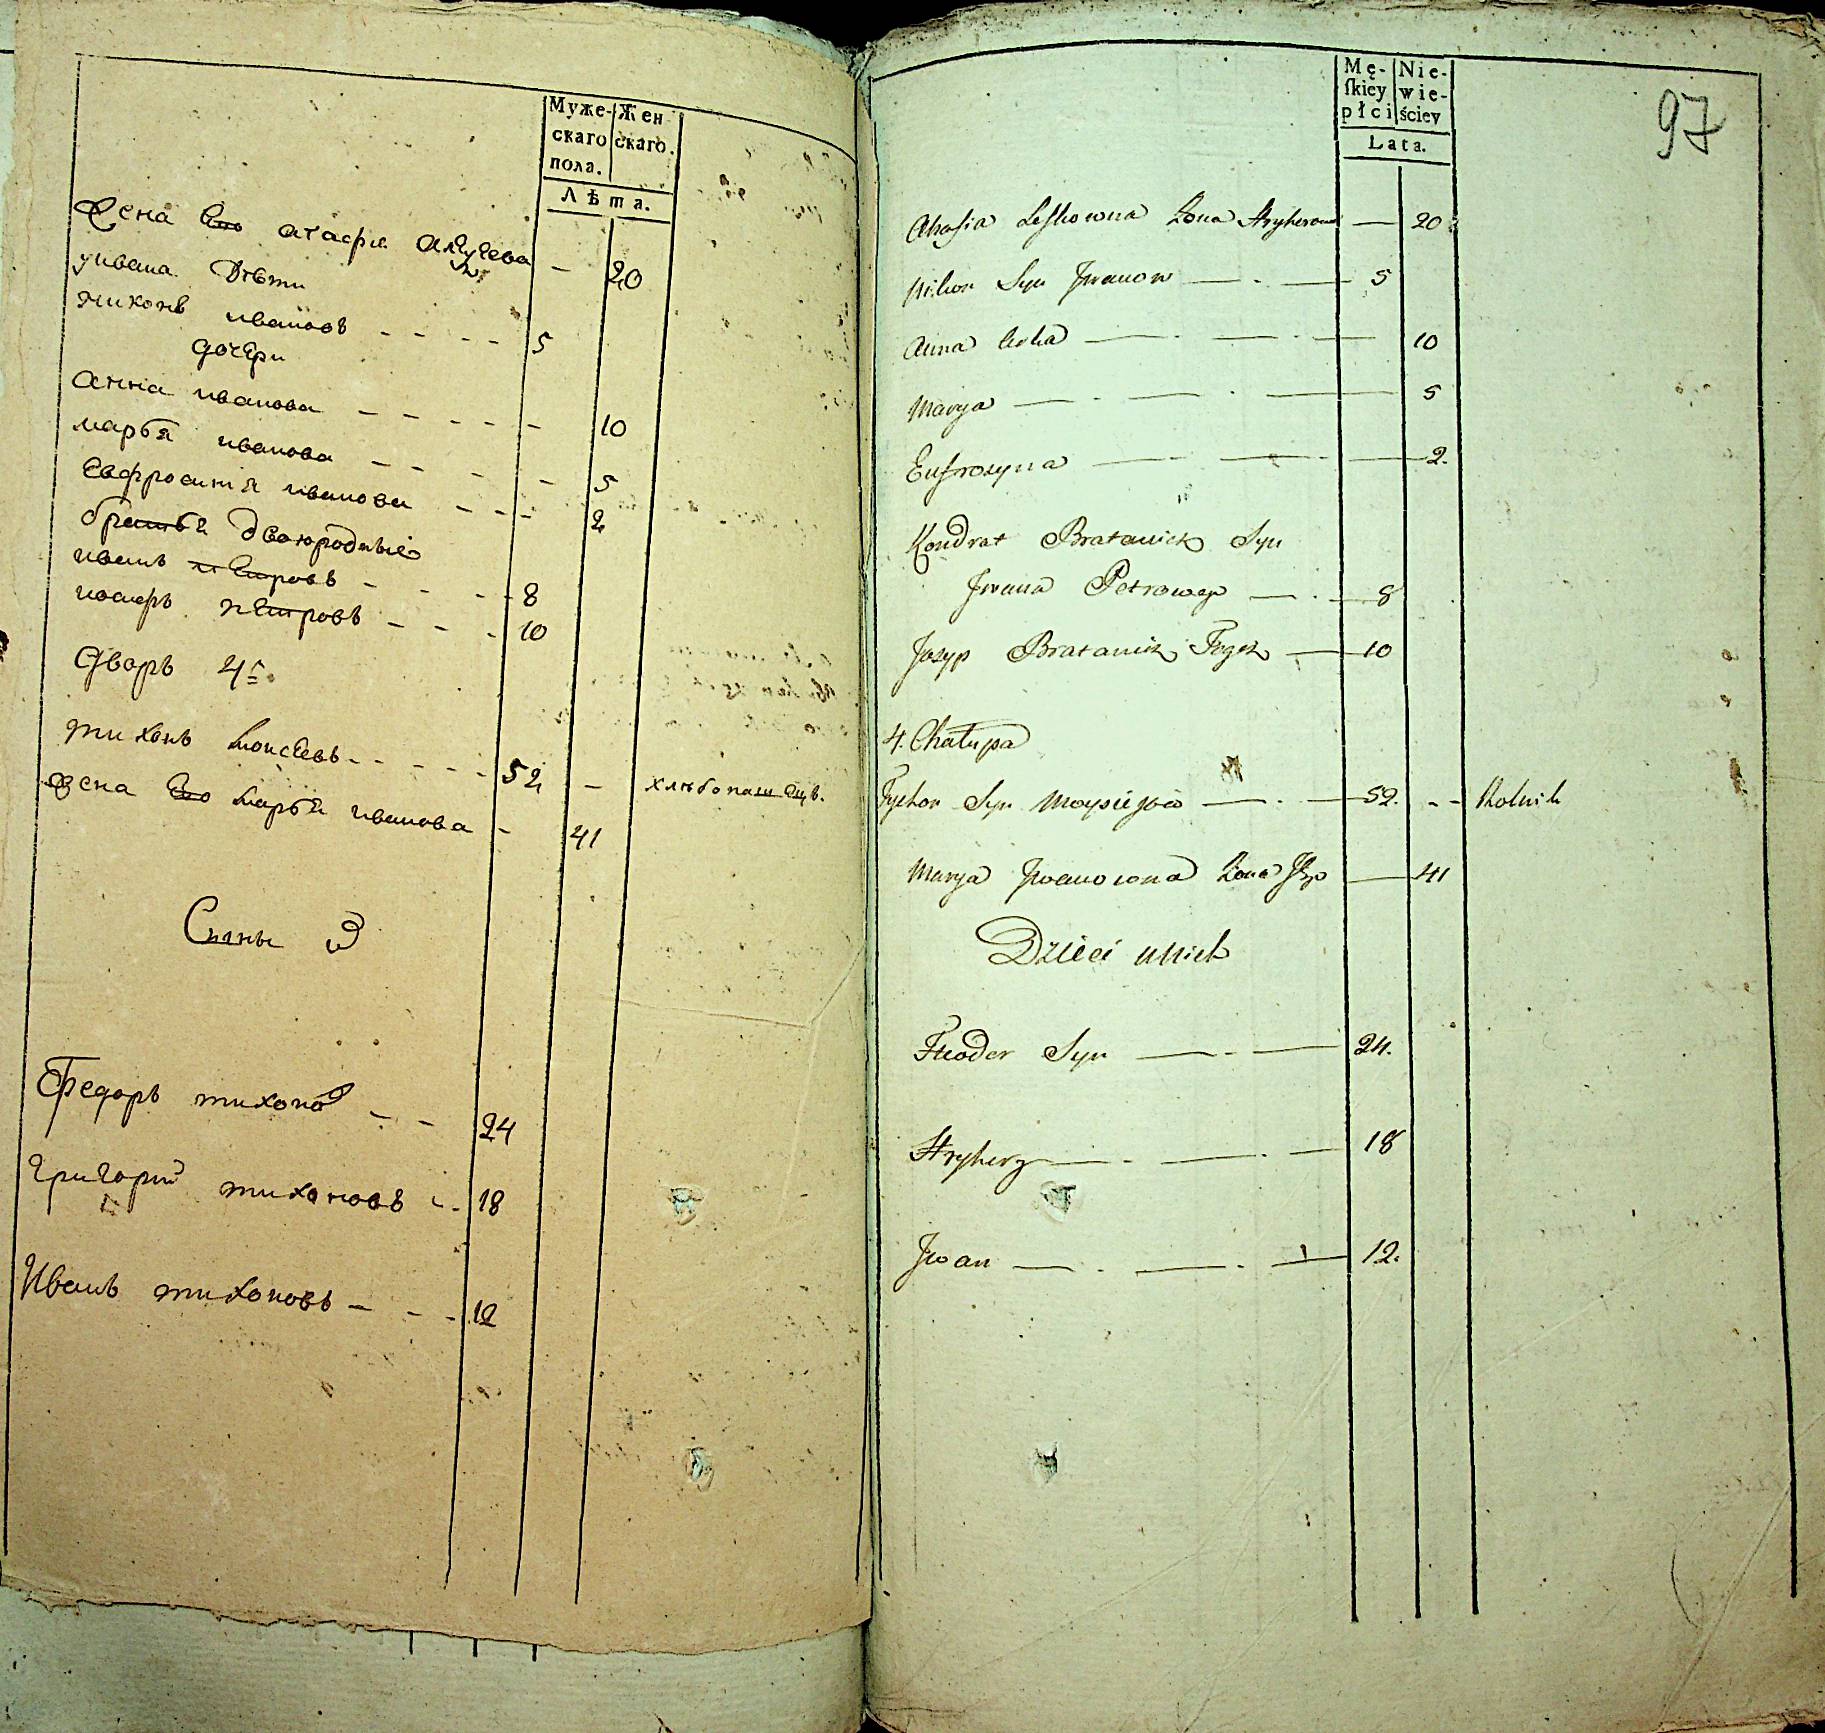 Муже-
скаго
пола.
Жен
скаго.
Лѣта.
Жена Его агафи
— 20
уивана Дѣти
никонъ ивановъ - - - - 5
дочери
анна иванова - - - - - 10
марья иванова - - - - - 5
Евфросинiя иванова - - - 2
братья двоюродные
иванъ петровъ - - - - 8
иосифъ петровъ - - - 10
Дворъ 4й
тихонъ моисеевъ - - - - - 52 — хлѣбопашецъ.
жена Его марья иванова - 41
Сыны
Федоръ тихоновъ - - 24
Григорий тихоновъ - - 18
Иванъ тихоновъ - - - 12
Mę-
ſkiey
płci
Nie-
wie-
ściey
Lata.
97
Ahafia Leſkowna Zona — 20
Nikon Syn Jwanow — . — 5
Anna Corka — . — . — 10
Marya — . — . — 5
Eufrozyna — . — . — 2.
Kondrat Bratanick Syn
Jwana Petrowego — . — 8
Jozyp Bratanick Tegoż — 10
4. Chałupa
Tychon Syn Moysiejow — . — 52. - - Rolnik
Marya Jwanowna Zona Jego — 41
Dzieci u Nich
Fteodor Syn — . — 24.
Hryhory — . — . — 18
Jwan — . — . — 12.